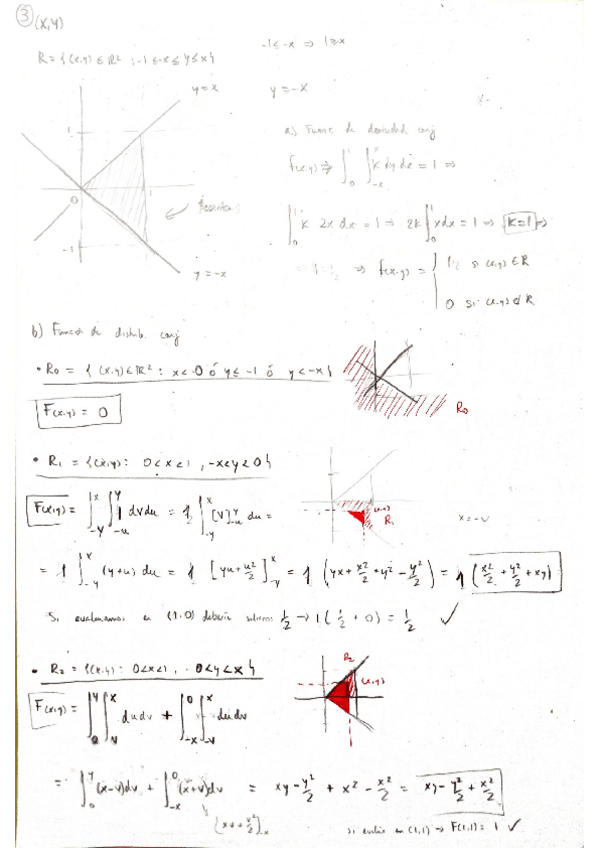 ③ (x,y)
R = { (x,y) ∈ R² : -1 ≤ -x ≤ y ≤ x }
-1 ≤ -x ⇒ 1 ≥ x
y = x
y = -x
1
0
1
-1
y = -x
a) Func de densidad conj
f(x,y) ⇒ ∫₀¹ ∫₋ₓˣ k dy dx = 1 ⇒
∫₀¹ k 2x dx = 1 ⇒ 2k ∫₀¹ x dx = 1 ⇒ k=1 ⇒
⇒ f(x,y) = { si (x,y) ∈ R
0 si (x,y) ∉ R
b) Función de distrib. conj
• R₀ = { (x,y) ∈ R² : x < 0 ó y ≤ -1 ó y < -x }
F(x,y) = 0
R₀
• R₁ = {(x,y) : 0<x<1 , -x<y<0 }
R₁
F(x,y) = ∫₋yˣ ∫₋ᵤʸ 1 dv du = 1 ∫₋yˣ [v]₋ᵤʸ du =
x = -v
= 1 ∫₋yˣ (y+u) du = 1 [yu + u²/2]₋yˣ = 1 (yx + x²/2 + y² - y²/2) = 1 (x²/2 + y²/2 + xy)
Si evaluamos en (1,0) debería salirnos 1/2 → 1 (1/2 + 0) = 1/2 ✓
• R₂ = {(x,y) : 0<x<1 , 0<y<x }
R₂
(x,y)
F(x,y) = ∫₀ʸ ∫ᵥˣ du dv + ∫₋ₓ⁰ ∫₋ᵥˣ du dv
= ∫₀ʸ (x-v) dv + ∫₋ₓ⁰ (x+v) dv = xy - y²/2 + x² - x²/2 = xy - y²/2 + x²/2
[xv + v²/2]₋ₓ
si evalúo en (1,1) → F(1,1) = 1 ✓